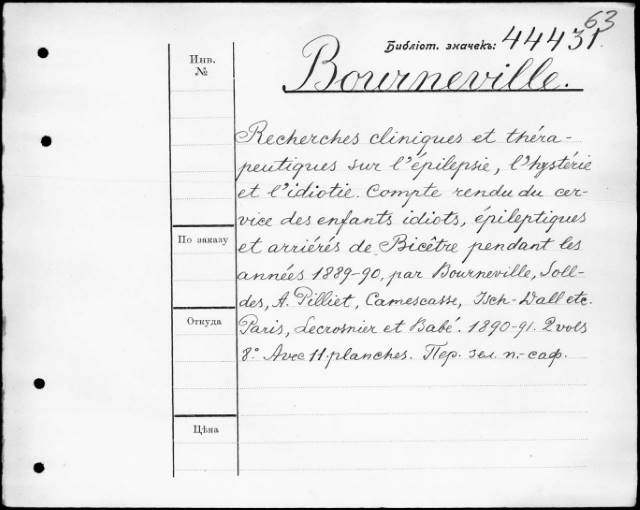 63
Библіот. значекъ: 44431.
Bourneville.
Инв.
№
Recherches cliniques et théra-
peutiques sur l'épilepsie, l'hystérie
et l'idiotie. Compte rendu du cer-
vice des enfants idiots, épileptiques
По заказу
et arriérés de Bicêtre pendant les
années 1889-90, par Bourneville, Soll-
des, A. Pilliet, Camescasse, Isch-Wall etc.
Откуда
Paris, Lecrosnier et Babé. 1890-91. 2 vols
8° Avec 11 planches. Пер. зел. п.-саф.
Цѣна